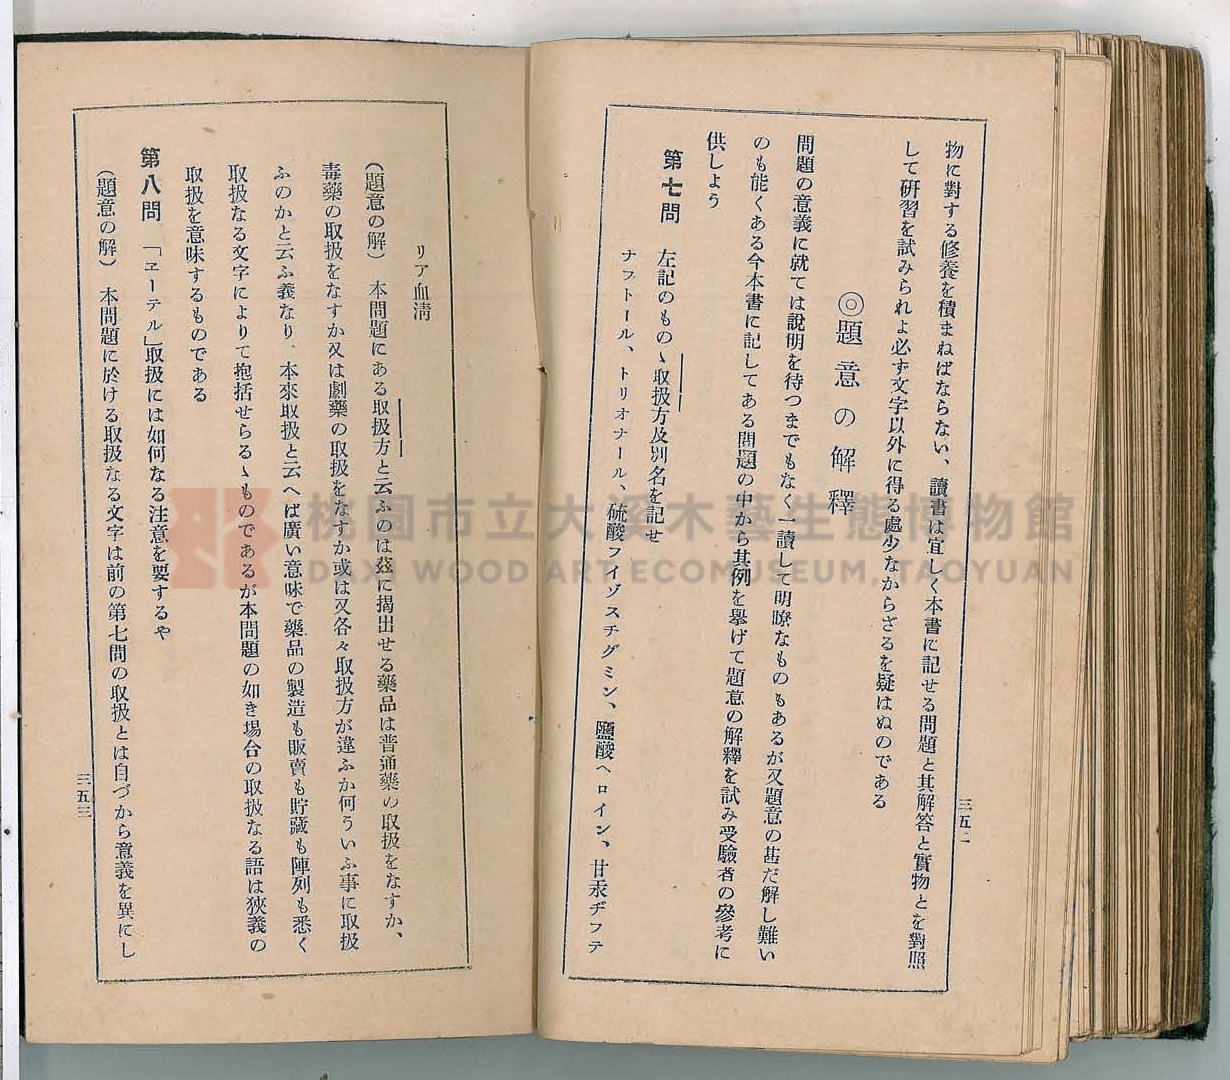 物に對する修養を積まねばならない、讀書は宜しく本書に記せる問題と其解答と實物とを對照
して硏習を試みられよ必ず文字以外に得る處少なからざるを疑はぬのである
◎題意の解釋
問題の意義に就ては說明を待つまでもなく一讀して明瞭なものもあるが又題意の甚だ解し難い
のも能くある今本書に記してある問題の中から其例を擧げて題意の解釋を試み受驗者の參考に
供しよう
第七問 左記のものゝ取扱方及別名を記せ
ナフトール、トリオナール、硫酸フイゾスチグミン、鹽酸ヘロイン、甘汞ヂフテ
三五二
リア血清
(題意の解) 本問題にある取扱方と云ふのは玆に揭出せる藥品は普通藥の取扱をなすか、
毒藥の取扱をなすか又は劇藥の取扱をなすか或は又各々取扱方が違ふか何ういふ事に取扱
ふのかと云ふ義なり、本來取扱と云へば廣い意味で藥品の製造も販賣も貯藏も陣列も悉く
取扱なる文字によりて抱括せらるゝものであるが本問題の如き塲合の取扱なる語は狹義の
取扱を意味するものである
第八問 「ヱーテル」取扱には如何なる注意を要するや
(題意の解) 本問題に於ける取扱なる文字は前の第七問の取扱とは自づから意義を異にし
三五三
桃園市立大溪木藝生態博物館
DAXI WOOD ART ECOMUSEUM, TAOYUAN